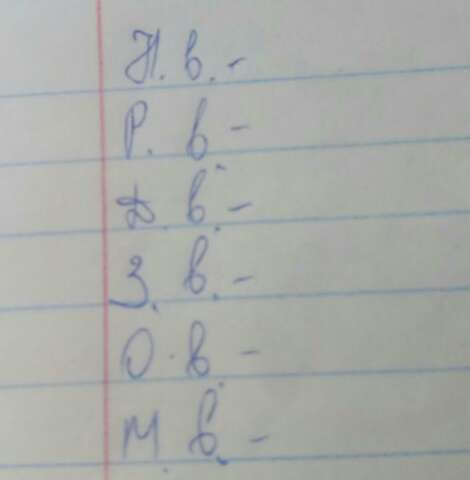 Н. в. -
Р. в -
Д. в. -
З. в. -
О. в -
М. в. -